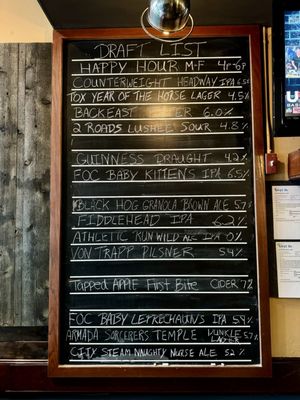 DRAFT LIST
HAPPY HOUR M-F 4P-6P
COUNTERWEIGHT HEADWAY IPA 6.5
TOX YEAR OF THE HORSE LAGER 4.5%
BACKEAST 6.0%
2 ROADS LUSHEE SOUR 4.8%
GUINNESS DRAUGHT 4.2%
FOC BABY KITTENS IPA 6.5%
BLACK HOG GRANOLA BROWN ALE 5.7%
FIDDLEHEAD IPA 6.2%
ATHLETIC RUN WILD NA IPA 0%
VON TRAPP PILSNER 5.4%
TAPPED APPLE FIRST BITE CIDER 7%
FOC BABY LEPRECHAUNS IPA 5.9%
ARMADA SORCERERS TEMPLE DUNKLE LAGER 5.7%
CITY STEAM NAUGHTY NURSE ALE 5.2%